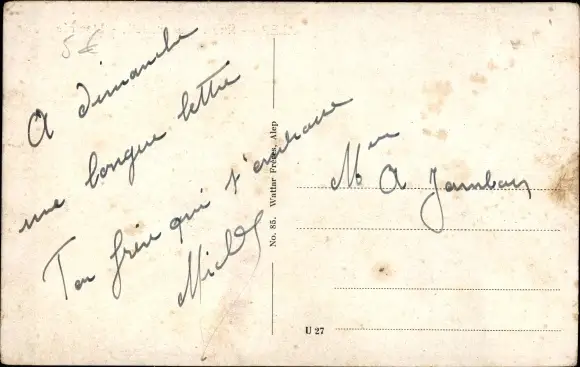 5 €
A dimanche
une longue lettre
Ton frère qui t'embrasse
Michel
No. 85. Wattar Frères, Alep
Mr A
U 27